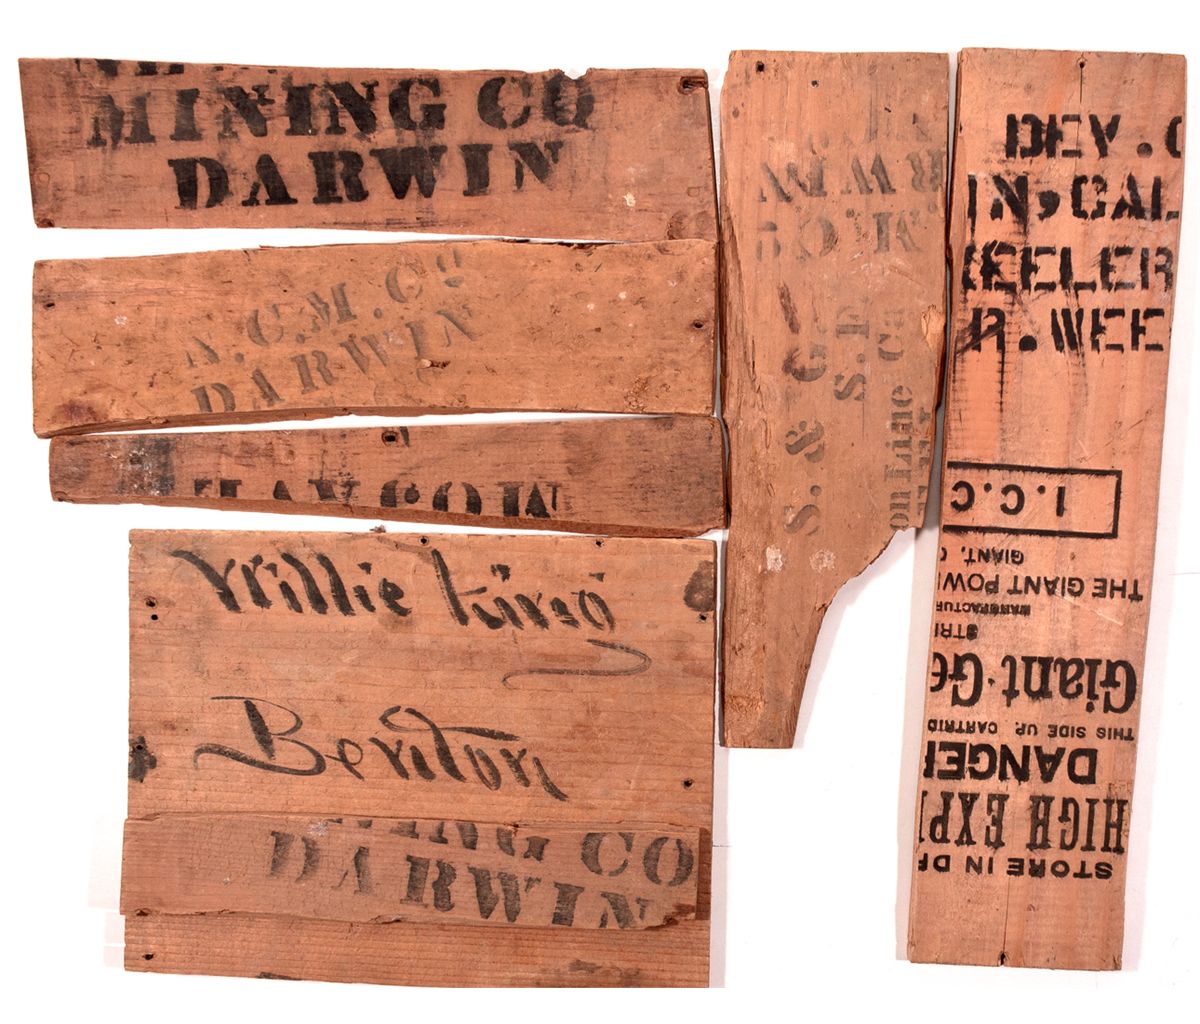 MINING CO
DARWIN
N.C.M. Co
DARWIN
Willie King
Benton
MINING CO
DARWIN
S. & G.
S.F.
on Line Ca
DEV. C
IN, CAL
EELER
R. WEE
STORE IN DR
HIGH EXP
DANGER
THIS SIDE UP. CARTRID
Giant Ge
STRE
MANUFACTUR
THE GIANT POW
GIANT, C
I.C.C